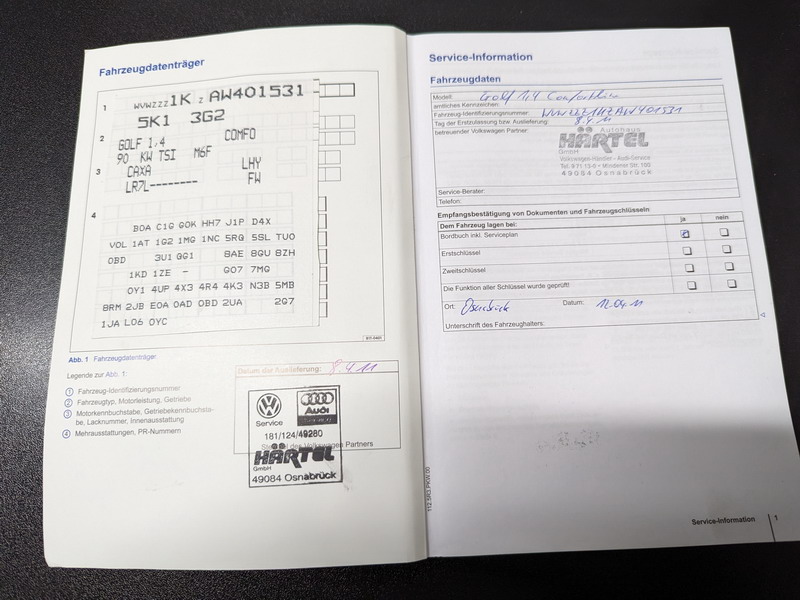 Fahrzeugdatenträger
1
WVWZZZ1K Z AW401531
5K1 3G2
2
GOLF 1,4 COMFO
90 KW TSI M6F
3
CAXA LHY
LR7L-------- FW
4
BOA C1G GOK HH7 J1P D4X
VOL 1AT 1G2 1MG 1NC 5RQ 5SL TUO
OBD 3U1 GG1 8AE 8GU 8ZH
1KD 1ZE - GO7 7MG
OY1 4UP 4X3 4R4 4K3 N3B 5MB
8RM 2JB EOA OAD OBD 2UA 2G7
1JA L06 OYC
Abb. 1 Fahrzeugdatenträger
Legende zur Abb. 1:
1 Fahrzeug-Identifizierungsnummer
2 Fahrzeugtyp, Motorleistung, Getriebe
3 Motorkennbuchstabe, Getriebekennbuchsta-
be, Lacknummer, Innenausstattung
4 Mehrausstattungen, PR-Nummern
Datum der Auslieferung: 8.4.11
Service Audi
Service
181/124/49280
Partners
HÄRTEL
GmbH
49084 Osnabrück
Service-Information
Fahrzeugdaten
Modell: Golf 1,4 Comfortline
amtliches Kennzeichen:
Fahrzeug-Identifizierungsnummer: WVWZZZ1KZAW401531
Tag der Erstzulassung bzw. Auslieferung: 8.4.11
betreuender Volkswagen Partner:
Autohaus
HÄRTEL
GmbH
Volkswagen-Händler - Audi-Service
Tel. 9 71 13-0 • Mindener Str. 100
49084 Osnabrück
Service-Berater:
Telefon:
Empfangsbestätigung von Dokumenten und Fahrzeugschlüsseln
Dem Fahrzeug lagen bei: ja nein
Bordbuch inkl. Serviceplan
Erstschlüssel
Zweitschlüssel
Die Funktion aller Schlüssel wurde geprüft!
Ort: Osnabrück Datum: 12.04.11
Unterschrift des Fahrzeughalters:
112.5R3.PKW.00
Service-Information 1